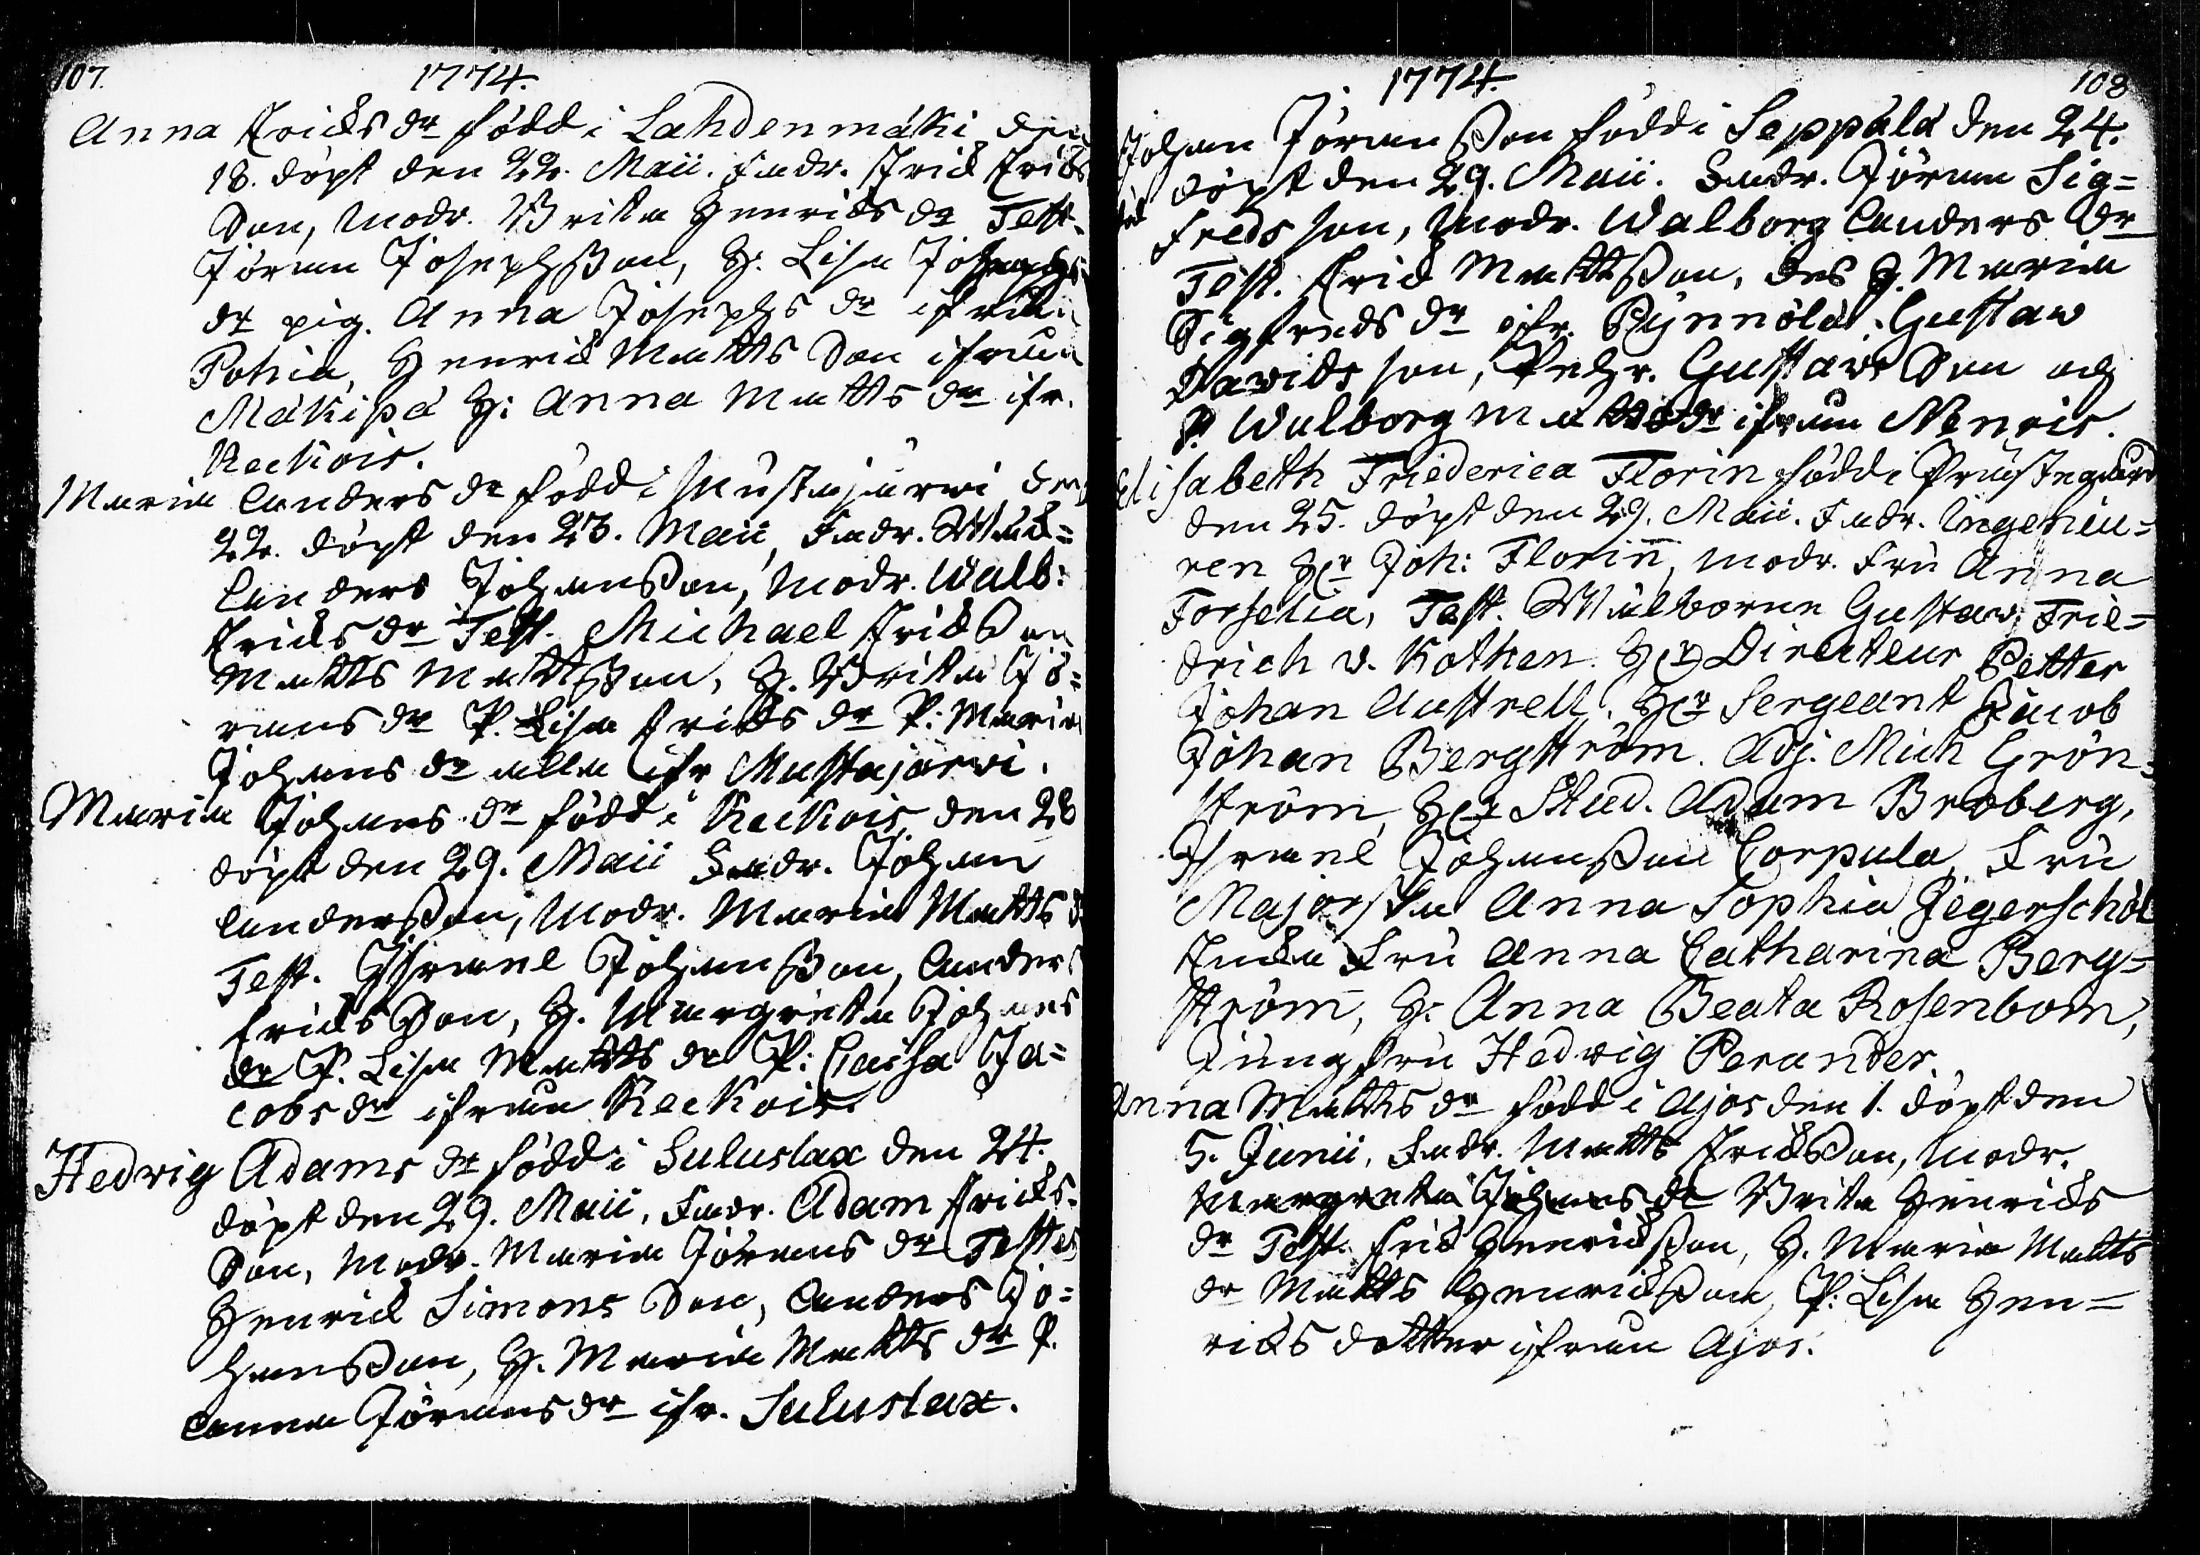 107. 1774.
Anna Ericks dr född i Lahdenmäki den
18. döpt den 22. Maii. Fadr. Erick Ericks
Son, Modr. Brita Henricks dr Test.
Jöran Josephsson, H. Lisa Josephs
dr pig. Anna Josephs dr ifrån
Pohia, Henrick Matts Son ifrån
Mäkipä H: Anna Matts dr ifr.
Keckois.
Maria Anders dr född i Mustajärwi den
22. döpt den 23. Maii, Fadr.
Anders Johansson, Modr. Walb:
Ericks dr Test. Michael Ericksson
Matts Mattsson, H. Brita Jö=
rans dr P. Lisa Ericks dr P: Maria
Johans dr alla ifr Mustajärwi.
Maria Johans dr född i Keckois den 28
döpt den 29. Maii Fadr. Johan
Andersson, Modr. Maria Matts d
Test. Israel Johansson, Anders
Ericks Son, H. Margreta Johans
dr P. Lisa Matts dr P: Caisa Ja=
cobs dr ifrån Keckois.
Hedvig Adams dr född i Suluslax den 24.
döpt den 29. Maii, Fadr. Adam Ericks
Son, Modr. Maria Jörans dr Testes
Henrick Simons Son, Anders Jo=
hansson, H. Maria Matts dr P.
Anna Jörans dr ifr. Suluslax.
1774. 108
Johan Jöransson född i Seppälä den 24.
döpt den 29. Maii. Fadr. Jöran Sig=
freds son, Modr. Walborg Anders dr
Test. Erick Mattsson, des H. Maria
Sigfreds dr ifr. Rynnölä. Gustaw
Dawids son, Pehr. Gustaws Son och
P. Walborg Matts dr ifrån Nenois.
Elisabeth Friederica Florin född i Prästegård
den 25. döpt den 29. Maii. Fadr. Ingenieu=
ren Hr Joh: Florin, Modr. Fru Anna
Forselia, Test. Wälborne Gustaw Frie=
drich v. Kothen. Hr Directeur Petter
Johan Austrell. Hr Sergeant Jacob
Johan Bergström. Adj. Mich Grön=
ström, Hr Stud. Adam Broberg,
Israel Johansson Corpula, Fru
Majorskan Anna Sophia Jegerschöl
Enka Fru Anna Catharina Berg=
ström, H: Anna Beata Rosenbom,
Jungfru Hedvig Perander.
Anna Matts dr född i Ajos den 1. döpt den
5. Junii, Fadr. Matts Ericksson, Modr.
Margreta Johans dr Brita Henricks
dr Test. Erick Henricksson, H. Maria Matts
dr Matts Henricksson, P: Lisa Hen=
ricks dotter ifrån Ajos.